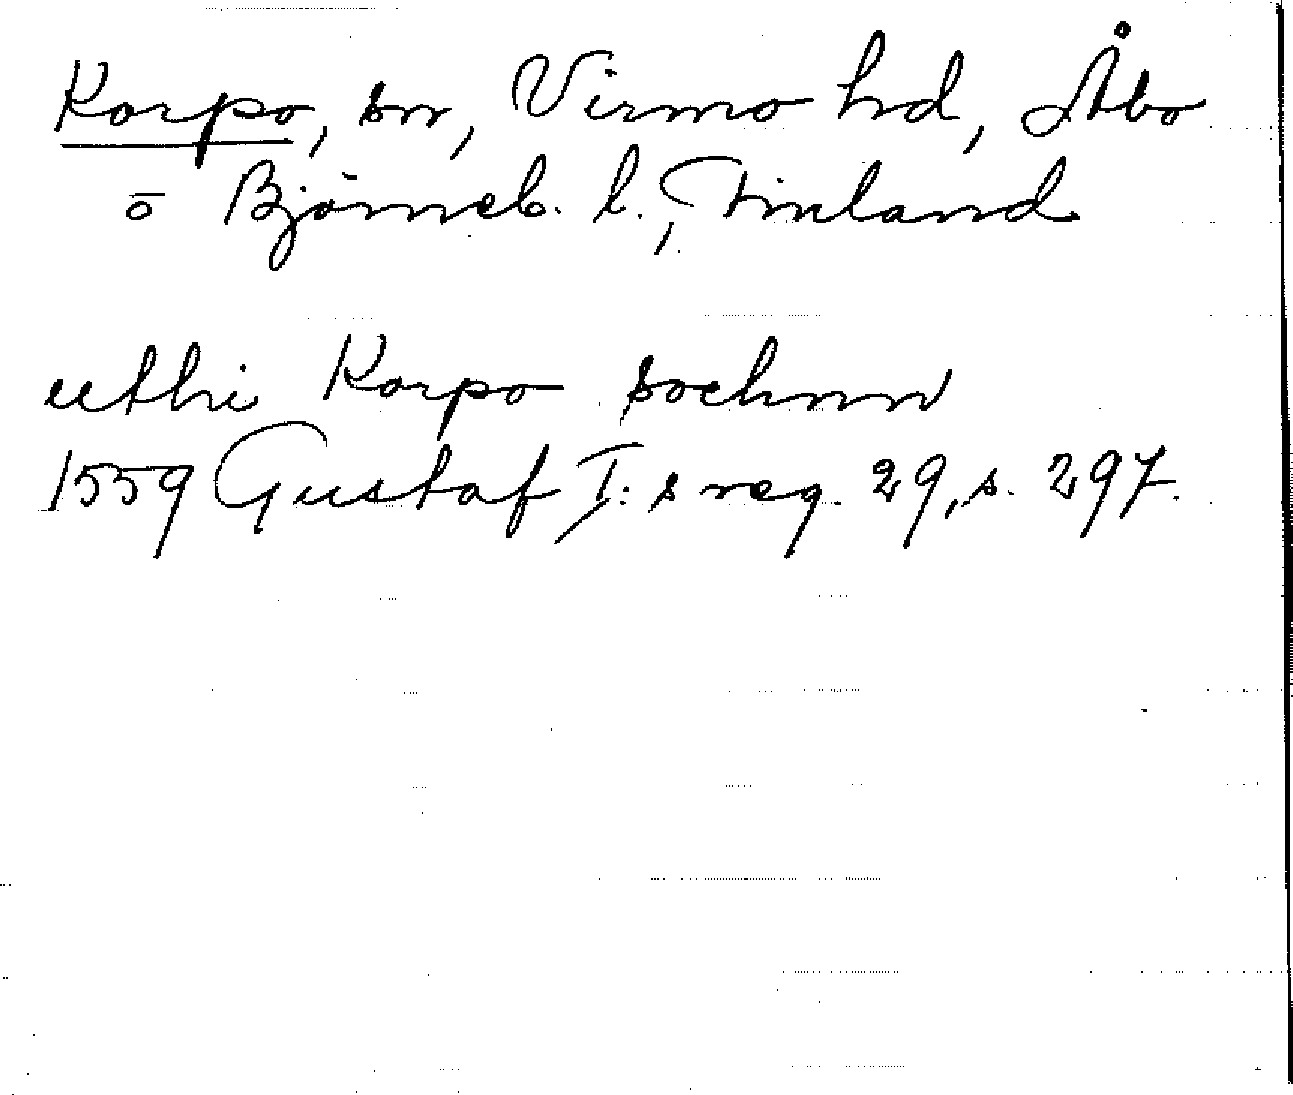 Korpo, sn, Virmo hd, Åbo
o Björneb. l., Finland
utthi Korpo sochnn
1559 Gustaf I:s reg. 29, s. 297.